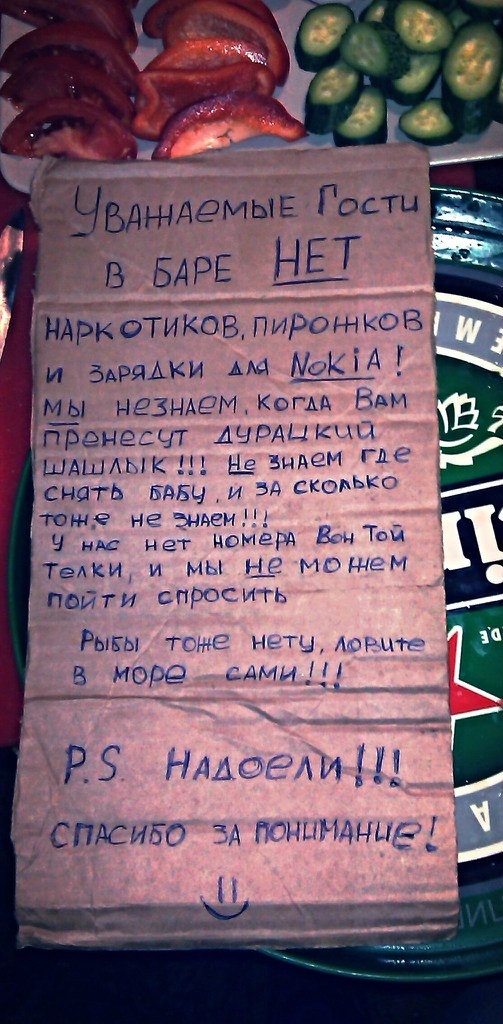 Уважаемые Гости
в баре НЕТ
наркотиков, пирожков
и зарядки для NOKIA!
мы незнаем, когда Вам
пренесут дурацкий
шашлык!!! Не знаем где
снять бабу, и за сколько
тоже не знаем!!!
У нас нет номера Вон Той
телки, и мы не можем
пойти спросить
Рыбы тоже нету, ловите
в море сами!!!
P.S Надоели!!!
спасибо за понимание!